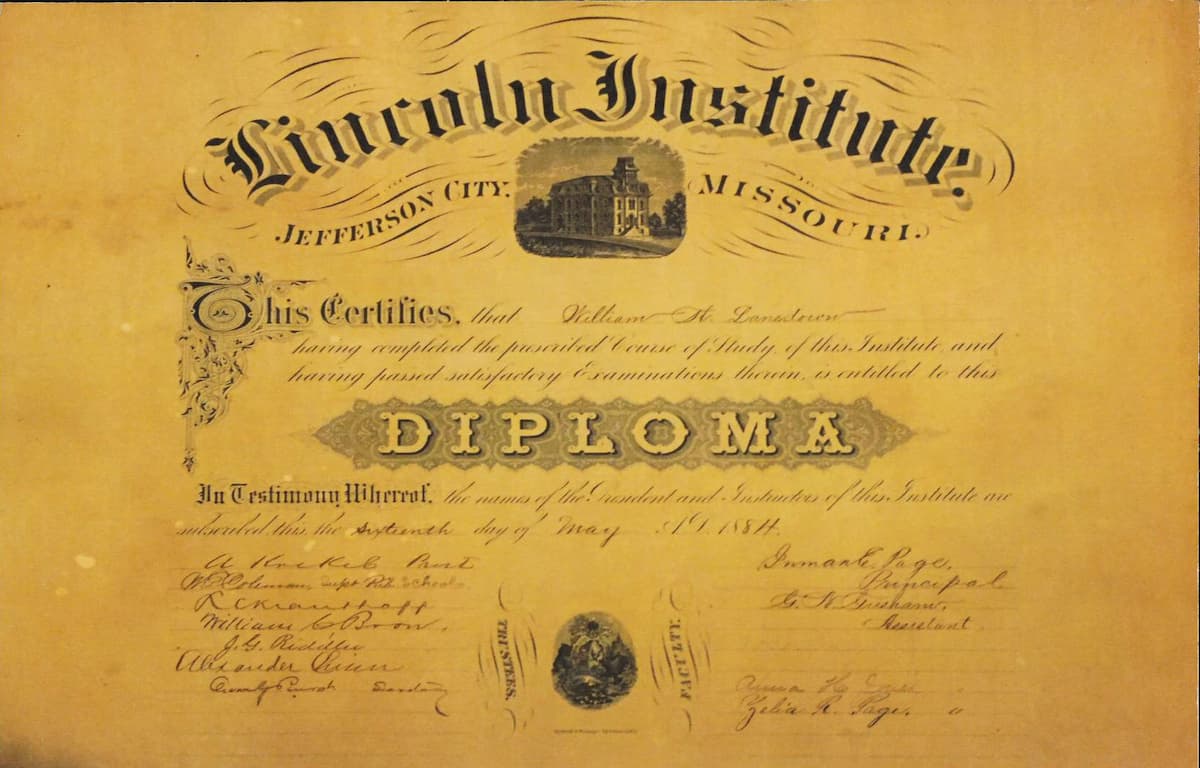 Lincoln Institute.
JEFFERSON CITY, MISSOURI.
This Certifies, that William H. Lansdown
having completed the prescribed Course of Study, of this Institute, and
having passed satisfactory Examinations therein, is entitled to this
DIPLOMA
In Testimony Whereof, the names of the President and Instructors of this Institute are
subscribed, this, the sixteenth day of May A.D. 1884.
A Krekel Prest
W. E. Coleman, Supt Pub Schools
L C Krauthoff
William C Boon.
J. G. Riddler
Alexander
TRUSTEES.
Inman E. Page,
Principal
G. N. Gresham,
Assistant
FACULTY.
Anna H.
Zelia R. Page. "